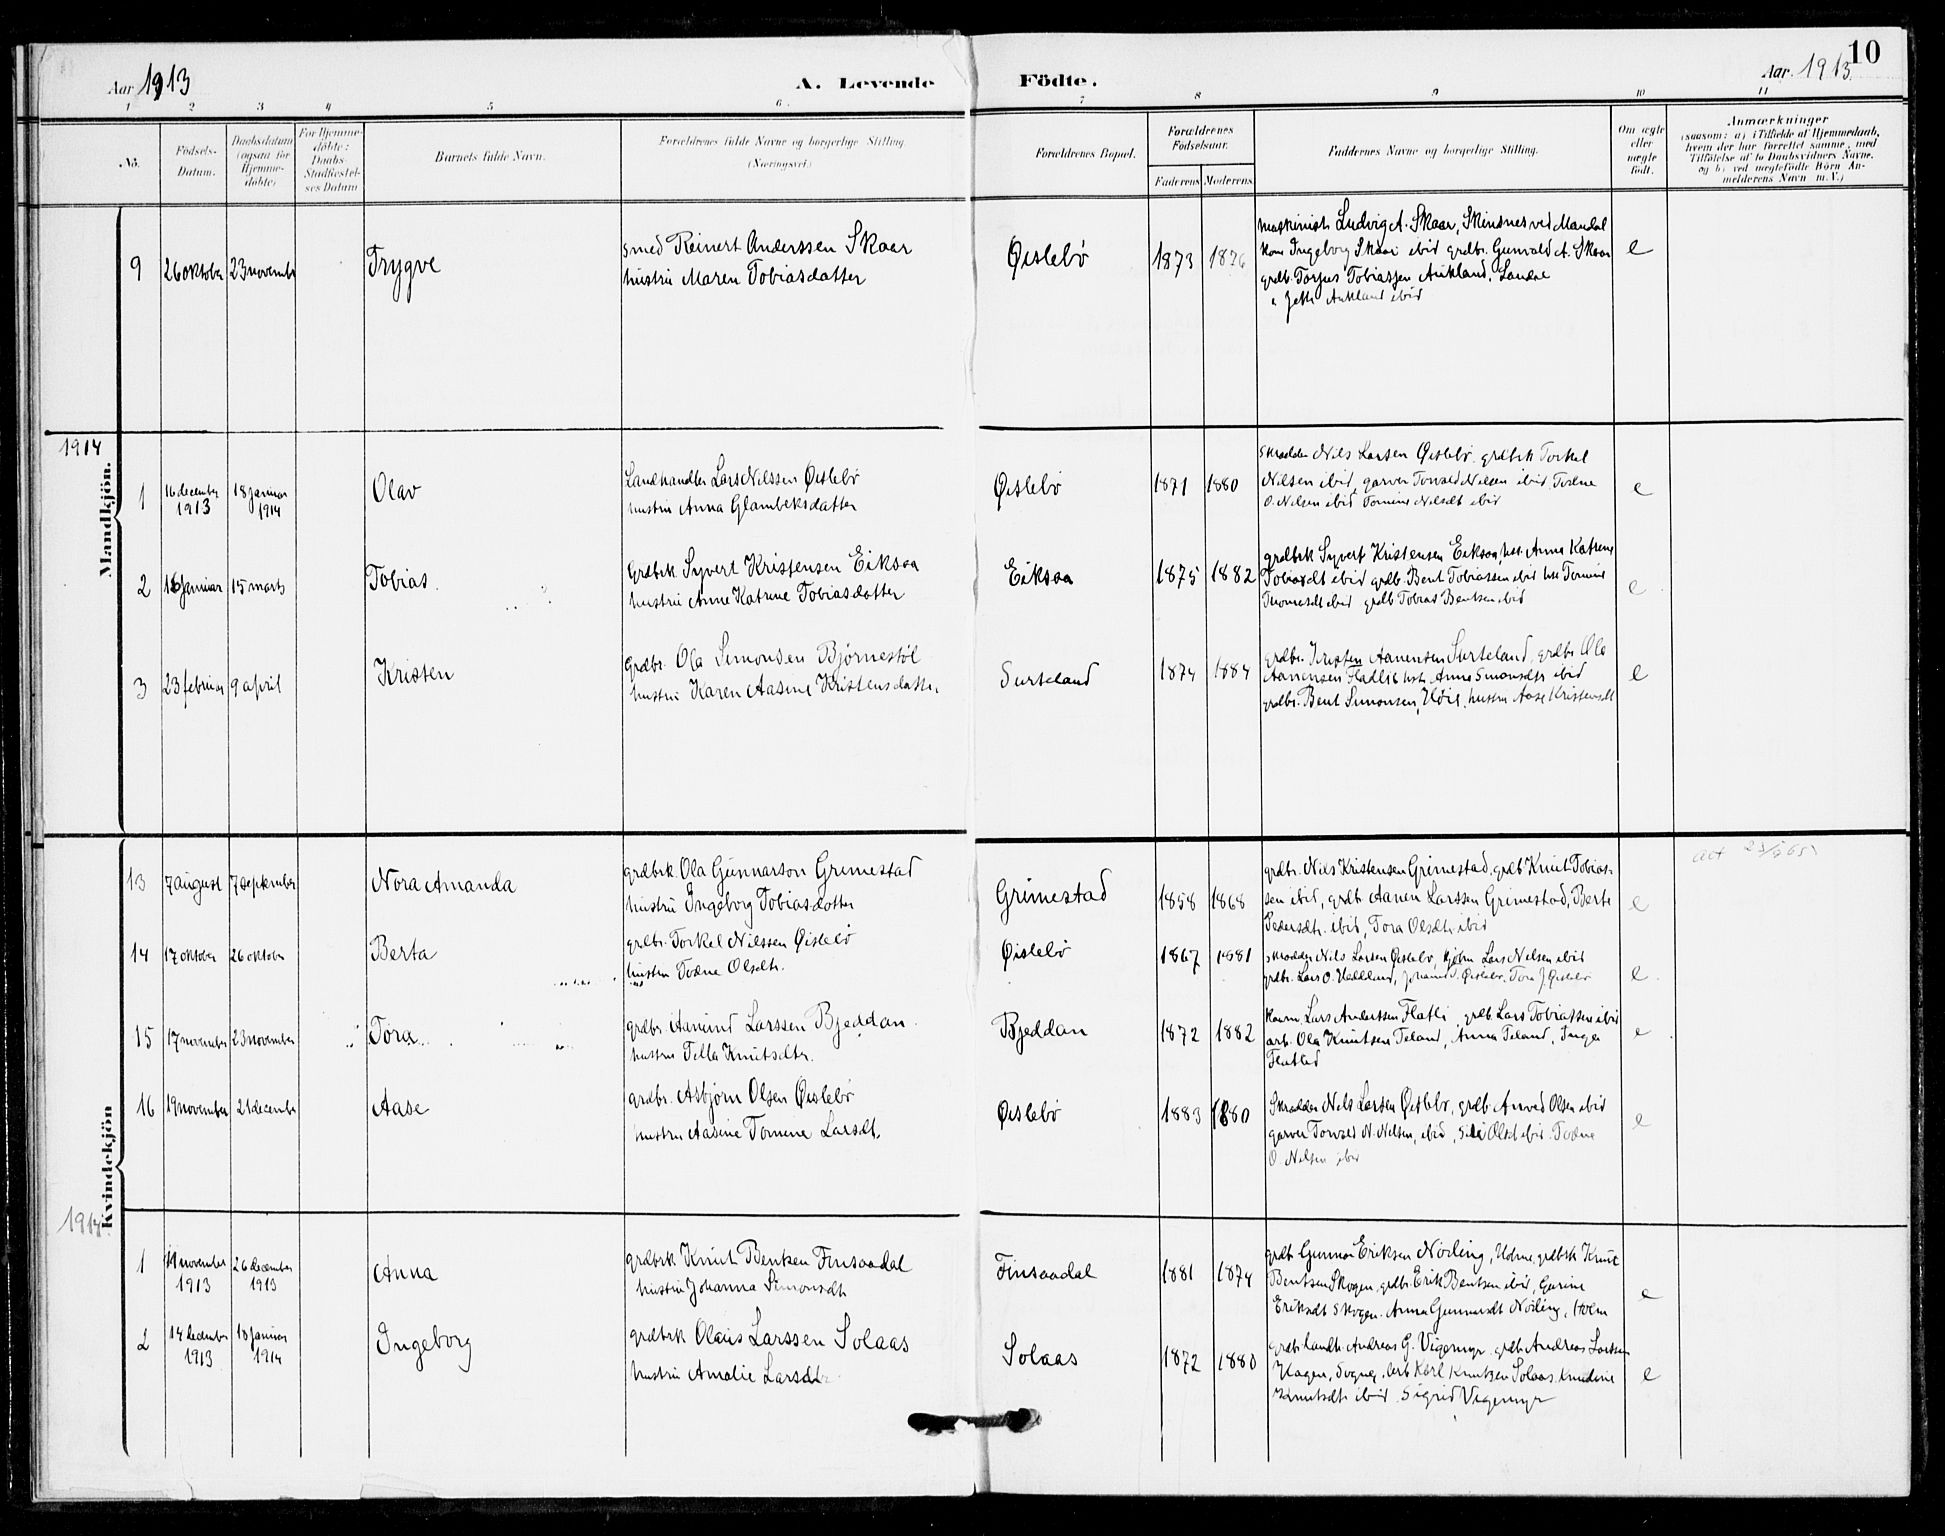 Aar 1913
A. Levende
Födte.
Aar. 1913
10
1 2 3 4 5 6 7 8 9 10 11
No.
Födsels-
Datum.
Daabsdatum
(ogsaa for
Hjemme-
döbte)
For Hjemme-
döbte:
Daabs-
Stadfæstel-
ses Datum
Barnets fulde Navn.
Forældrenes fulde Navne og borgerlige Stilling.
(Næringsvei.)
Forældrenes Bopæl.
Forældrenes
Födselsaar.
Faderens Moderens
Faddernes Navne og borgerlige Stilling.
Om ægte
eller
uægte
födt.
Anmærkninger
(saasom: a) i Tilfælde af Hjemmedaab,
hvem der har forrettet samme, med
Tilföielse af to Daabsvidners Navne,
og b) ved uægtefödte Börn An-
melderens Navn m. V.)
Mandkjön.
9 26 oktober 23 november Trygve
smed Reinert Anderssen Skaar
hustru Maren Tobiasdatter
Øislebø 1873 1876
maskinist Ludvig A. Skaar, Skinsnes ved Mandal
kone Ingeborg Skaar ibid grdbr. Gunvald A. Skaar
grdb. Torjus Tobiassen Aukland, Laudal
" Aukland ibid
e
1914
1 16 december 1913 18 januar 1914 Olav
Landhandler Lars Nilssen Øislebø
hustru Anna Glambeksdatter
Øislebø 1871 1880
Skrædder Nils Larsen Øislebø, grdbrk Torkel
Nilsen ibid, garver Torvald Nilsen ibid, Todne
O. Nilsen ibid Tomine Nilsdt ibid
e
2 16 januar 15 marts Tobias
Grdbrk Syvert Kristensen Eiksaa
hustru Anne Katrine Tobiasdatter
Eiksaa 1875 1882
grdbrk Syvert Kristensen Eiksaa, hst. Anna Katrine
Tobiasdt ibid grdb. Bent Tobiassen ibid hst Tomine
Thomasdt ibid grdb Tobias Bentsen ibid
e
3 23 februar 9 april Kristen
Grdbr. Ola Simonsen Bjørnestøl
hustru Karen Aasine Kristensdatter
Surteland 1874 1884
grdbr. Kristen Aanensen Surteland, grdbr. Ole
Aanensen Fladlib hst. Anne Simonsdtr ibid
grdbr. Bent Simonsen, hustru Aase Kristensdt
e
Kvindekjön
13 7 august 7 september Nora Amanda
grdbrk Ola Gunnarson Grimestad
hustru Ingeborg Tobiasdatter
Grimestad 1858 1868
grdbr. Nils Kristensen Grimestad, grdb Knut Tobias-
sen ibid, grdb Aanen Larssen Grimestad, Berte
Pedersdtr. ibid, Tora Olsdtr. ibid
e
14 17 oktober 26 oktober Berta
grdbr. Torkel Nilssen Øislebø
hustru Todne Olsdtr.
Øislebø 1867 1881
skrædder Nils Larsen Øislebø, Lars Nilsen ibid
grdbr. Lars O. Øislebø, Tora J. Øislebø
e
15 17 november 23 november Tora
grdbr. Aanund Larssen Bjeddan
hustru Tella Knutsdtr.
Bjeddan 1872 1882
Lars Anderssen Flatli, grdb Lars Tobiassen ibid
arb. Ola Knutsen Teland, Anna Teland, Inga
e
16 19 november 21 december Aase
grdbr. Asbjørn Olsen Øislebø
hustru Aasine Tomine Larsdt.
Øislebø 1883 1880
Skrædder Nils Larsen Øislebø, grdb. Anved Olsen ibid
garver Torvald N. Nilsen, ibid, Olsdt ibid. Todne
O. Nilsen ibid
e
1914
1 11 november 1913 26 december 1913 Anna
grdbrk Knut Bentsen Finsaadal
hustru Johanna Simonsdt
Finsaadal 1881 1874
grdb Gunnar Eriksen Nöding, Holme, grdbrk Knut
Bentsen Skogen, grdbr. Erik Bentsen ibid, Gurine
Eriksdt Skogen. Anna Gunnarsdt Nöding, Holm
e
2 14 december 1913 18 januar 1914 Ingeborg
grdbrk Olaus Larssen Solaas
hustru Amalie Larsdt
Solaas 1872 1880
landh. Andreas G. Vigemyr grdb Andreas Larssen
Hagen, Sogne, Arb Karl Knutsen Solaas Knudine
Knutsdt. ibid. Sigrid Vigemyr
e